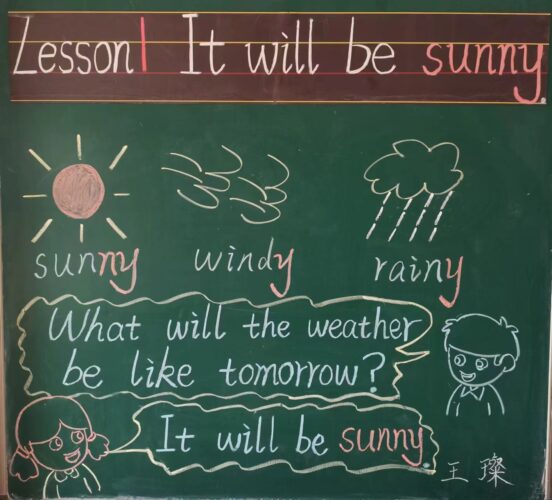 Lesson 1 It will be sunny.
sunny windy rainy
What will the weather
be like tomorrow?
It will be sunny.
王璨